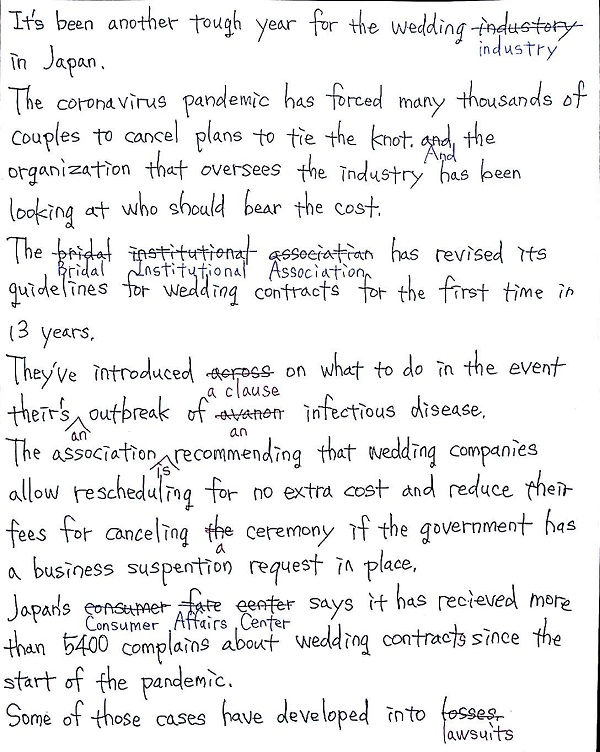 It's been another tough year for the wedding industory
industry
in Japan.
The coronavirus pandemic has forced many thousands of
couples to cancel plans to tie the knot. and, the
And
organization that oversees the industry has been
looking at who should bear the cost.
The bridal institutional association has revised its
Bridal Institutional Association
guidelines for wedding contracts for the first time in
13 years.
They've introduced across on what to do in the event
a clause
their's outbreak of avanon infectious disease.
an an
The association recommending that wedding companies
is
allow rescheduling for no extra cost and reduce their
fees for canceling the ceremony if the government has
a
a business suspention request in place.
Japan's consumer fare center says it has recieved more
Consumer Affairs Center
than 5400 complains about wedding contracts since the
start of the pandemic.
Some of those cases have developed into losses.
lawsuits